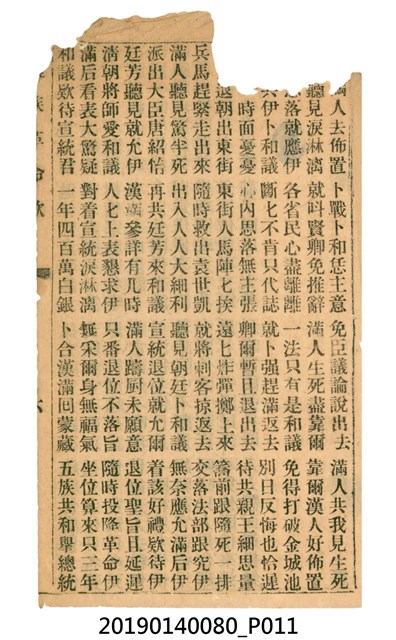 滿人去佈置　卜戰卜和恁主意　免臣議論說出去　滿人共我見生死
聽見淚淋漓　就叫賢卿免推辭　滿人生死盡靠爾　靠爾漢人好佈置
落就應伊　各省民心盡離離　一法只有是和議　免得打破金城池
與伊卜和議　斷七不肯只代誌　就卜强趕滿返去　別日反悔也恰遲
時面憂憂　心內思落無主張　卿爾暫且退出去　待共親王細思量
退朝出東街　東街人馬陣七挨　遠七炸彈擲上來　前跟隨死一排
兵馬趕緊走出來　隨時救出袁世凱　就將刺客掠返去　交落法部跟究伊
滿人聽見驚半死　出入人人大細利　聽見朝廷卜和議　無奈應允滿后伊
派出大臣唐紹怡　再共廷芳來和議　宣統退位就允爾　着該好禮欵待伊
廷芳聽見就允伊　漢滿參詳有几時　滿人躊厨未願意　退位聖旨且延遲
淸朝將師愛和議　人七上表懇求伊　只番退位不落旨　隨時投降革命伊
滿后看表大驚疑　對着宣統淚淋漓　無采爾身無福氣　坐位算來只三年
和議欵待宣統君　一年四百萬白銀　卜合漢滿囘蒙藏　五族共和舉總統
族革命歌
六
20190140080_P011